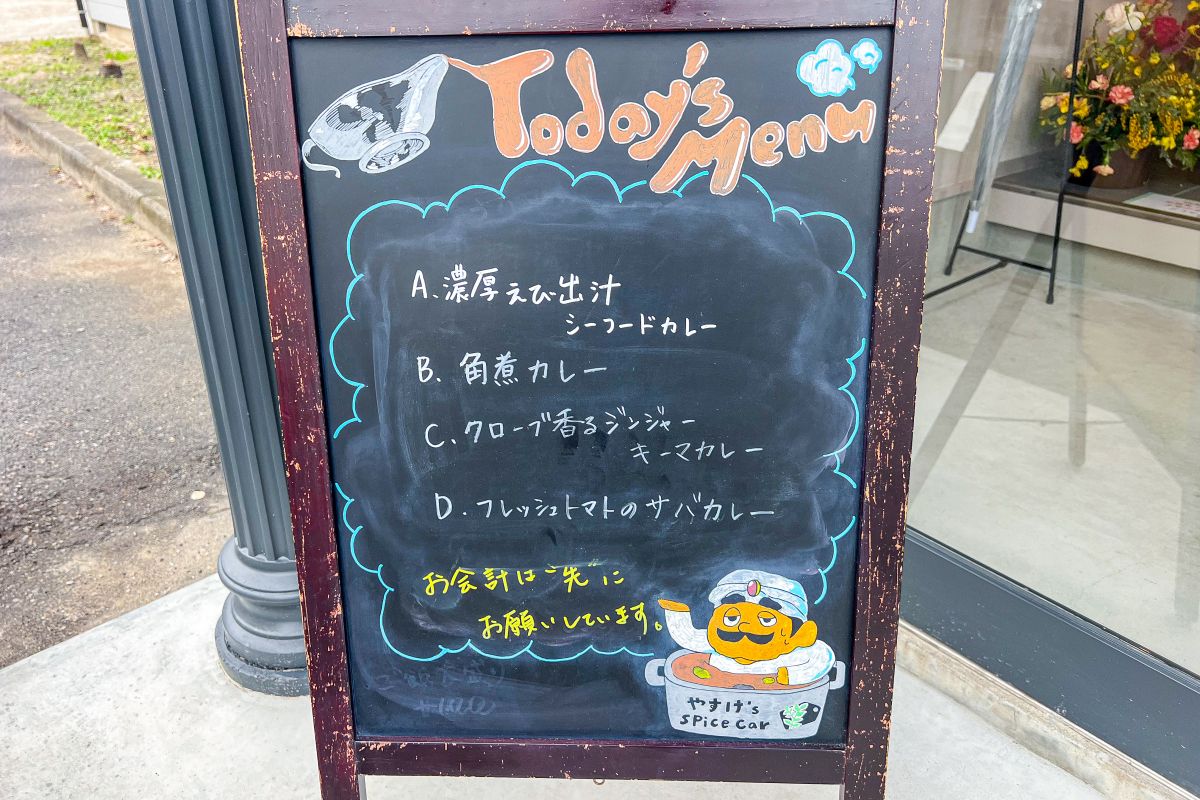 Today's
Menu
A. 濃厚えび出汁
シーフードカレー
B. 角煮カレー
C. クローブ香るジンジャー
キーマカレー
D. フレッシュトマトのサバカレー
お会計は"先"に
お願いしています。
やすけ's
SPice Car